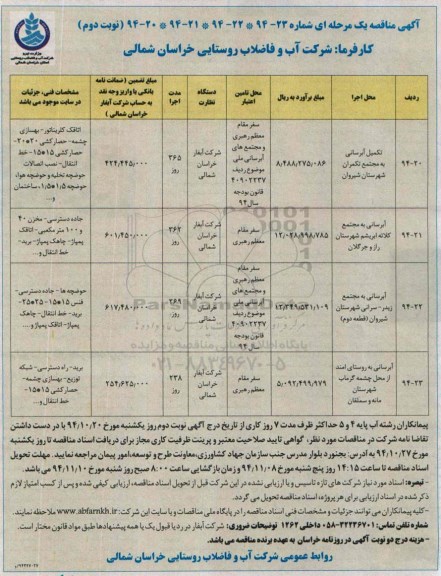 آگهی مناقصه یک مرحله ای شماره ۲۳-۹۴ * ۲۲-۹۴ * ۲۱-۹۴ * ۲۰-۹۴ (نوبت دوم)
کارفرما: شرکت آب و فاضلاب روستایی خراسان شمالی
ردیف
محل اجرا
مبلغ برآورد به ریال
محل تامین اعتبار
دستگاه نظارت
مدت اجرا
مبلغ تضمین (ضمانت نامه بانکی یا واریز وجه نقد به حساب شرکت آبفار خراسان شمالی)
مشخصات فنی، جزئیات در سایت موجود می باشد
۹۴-۲۰
تکمیل آبرسانی به مجتمع تکمران شهرستان شیروان
۸/۴۸۸/۲۷۵/۰۸۶
سفر مقام معظم رهبری و مجتمع های آبرسانی ملی موضوع ردیف ۴۰۹۰۲۲۳۷ قانون بودجه سال ۹۴
شرکت آبفار خراسان شمالی
۳۶۵ روز
۴۲۴/۴۴۵/۰۰۰
اتاقک کلریناتور- بهسازی چشمه- حصارکشی ۲۰*۲۰- حصارکشی ۱۵*۱۵- خط انتقال- نصب اتصالات حوضچه تخلیه و حوضچه هوا، حوضچه ۱/۵*۱/۵، ساختمان و...
۹۴-۲۱
آبرسانی به مجتمع کلاته ابریشم شهرستان راز و جرگلان
۱۲/۰۲۸/۹۹۸/۷۸۵
سفر مقام معظم رهبری
شرکت آبفار خراسان شمالی
۳۶۲ روز
۶۰۱/۴۵۰/۰۰۰
جاده دسترسی- مخزن ۴۰ و ۱۰۰ متر مکعبی- اتاقک پمپاژ- چاهک پمپاژ- برید- خط انتقال و...
۹۴-۲۲
آبرسانی به مجتمع زیدر- سرانی شهرستان شیروان (قطعه دوم)
۱۲/۳۴۹/۵۳۱/۱۰۹
سفر مقام معظم رهبری و مجتمع های آبرسانی موضوع ردیف ۴۰۹۰۲۲۳۷ قانون بودجه سال ۹۴
شرکت آبفار خراسان شمالی
۲۸۹ روز
۶۱۷/۴۸۰/۰۰۰
حوضچه ها- جاده دسترسی- فنس ۱۵*۱۵- ۲۵*۲۵- برید- خط انتقال- چاهک پمپاژ- اتاقک پمپاژ و...
۹۴-۲۳
آبرسانی به روستای امند از محل چشمه گرماب شهرستان مانه و سملقان
۵/۰۹۲/۴۹۹/۹۷۹
سفر مقام معظم رهبری
شرکت آبفار خراسان شمالی
۲۳۸ روز
۲۵۴/۶۲۵/۰۰۰
برید- راه دسترسی- شبکه توزیع- بهسازی چشمه- حصارکشی ۱۵*۱۵- خط انتقال و...
ParsNamadData
پایگاه اطلاع رسانی مناقصه و مزایده
۰۲۱-۸۸۳۴۹۶۷۰-۵
پیمانکاران رشته آب پایه ۴ و ۵ حداکثر ظرف مدت ۷ روز کاری از تاریخ درج آگهی نوبت دوم روز یکشنبه مورخ ۹۴/۱۰/۲۰ با در دست داشتن
تقاضا نامه شرکت در مناقصات مورد نظر، گواهی تایید صلاحیت معتبر و پرینت ظرفیت کاری مجاز برای دریافت اسناد مناقصه تا روز یکشنبه
مورخ ۹۴/۱۰/۲۷ به آدرس: بجنورد بلوار مدرس جنب سازمان جهاد کشاورزی، معاونت طرح و توسعه، امور پیمان مراجعه نمایید. مهلت تحویل
اسناد مناقصه تا ساعت ۱۴:۱۵ روز پنج شنبه مورخ ۹۴/۱۱/۰۸ و زمان بازگشایی ساعت ۸:۰۰ صبح روز شنبه مورخ ۹۴/۱۱/۱۰ می باشد.
- تبصره: اسناد مورد نیاز شرکت های تازه تاسیس و یا ارزیابی نشده در این شرکت قبل از تحویل اسناد مناقصه، ارزیابی کیفی شده و پس از کسب امتیاز لازم
ذکر شده در اسناد ارزیابی برای هر پروژه، اسناد مناقصه تحویل می گردد.
- کلیه پیمانکاران می توانند جزئیات و مشخصات فنی اسناد مناقصه را در پایگاه ملی مناقصات و یا سایت این شرکت: www.abfarnkh.ir ملاحظه نمایند.
شماره تلفن تماس: ۳۲۲۳۶۷۰۱-۰۵۸ داخلی ۱۲۶۲ توضیحات ضروری: شرکت آبفار در رد یا قبول یک یا همه پیشنهادها طبق مواد قانون مختار است.
- هزینه درج دو نوبت آگهی در روزنامه خراسان به عهده برنده مناقصه می باشد.
روابط عمومی شرکت آب و فاضلاب روستایی خراسان شمالی